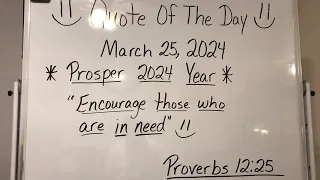 Quote Of The Day
March 25, 2024
* Prosper 2024 Year *
"Encourage those who
are in need"
Proverbs 12:25